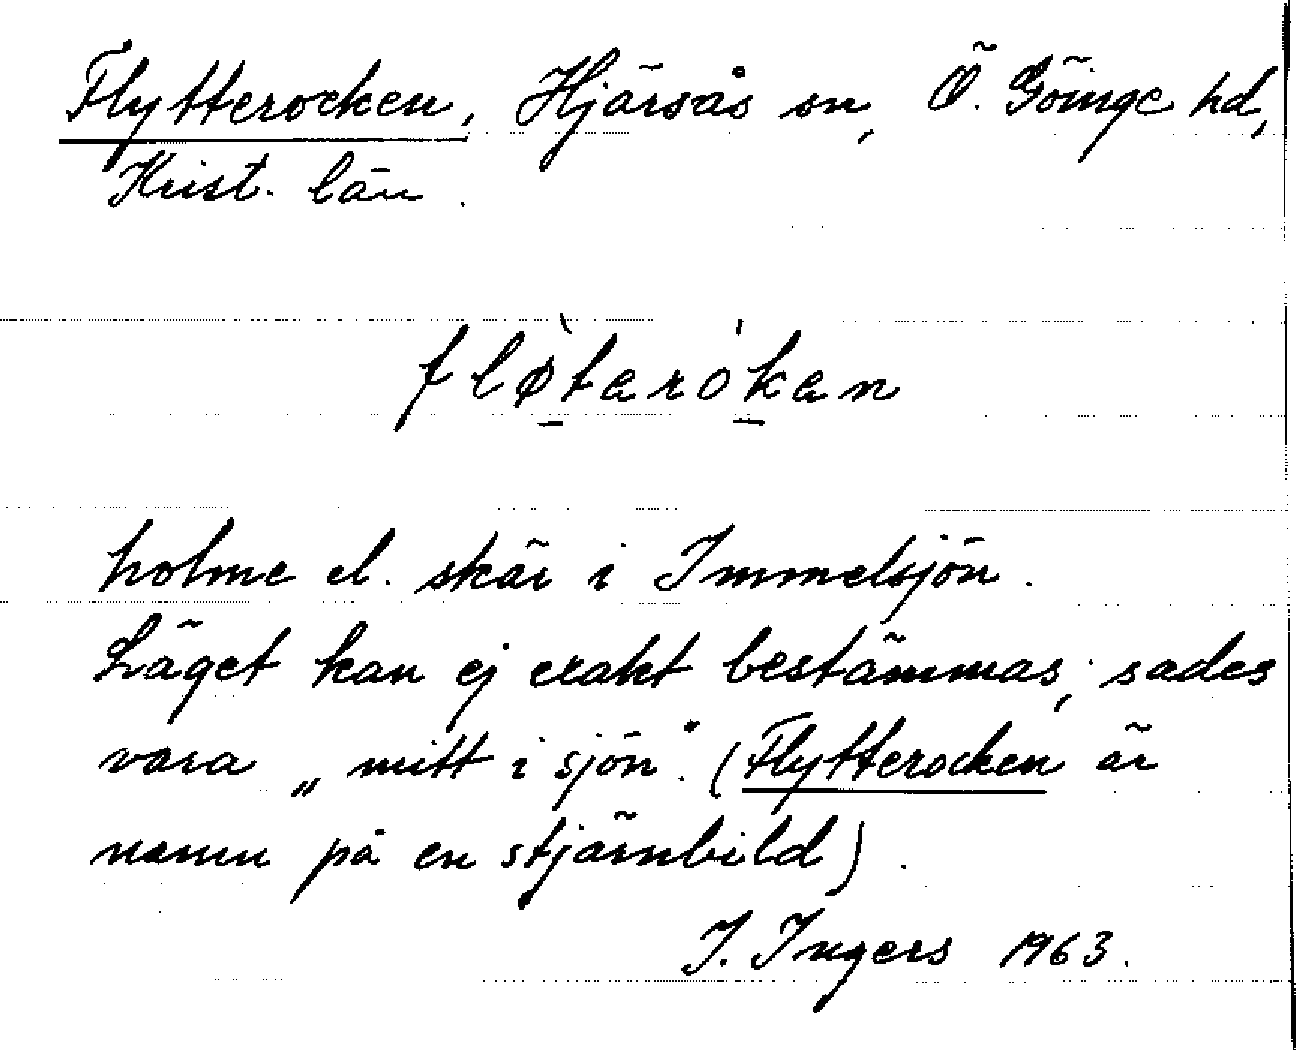 Flytterocken, Hjärsås sn, Ö. Göinge hd,
Krist. län.
flø̀teròken
holme el. skär i Immelsjön.
Läget kan ej exakt bestämmas; sades
vara „mitt i sjön". (Flytterocken är
namn på en stjärnbild).
I. Ingers 1963.